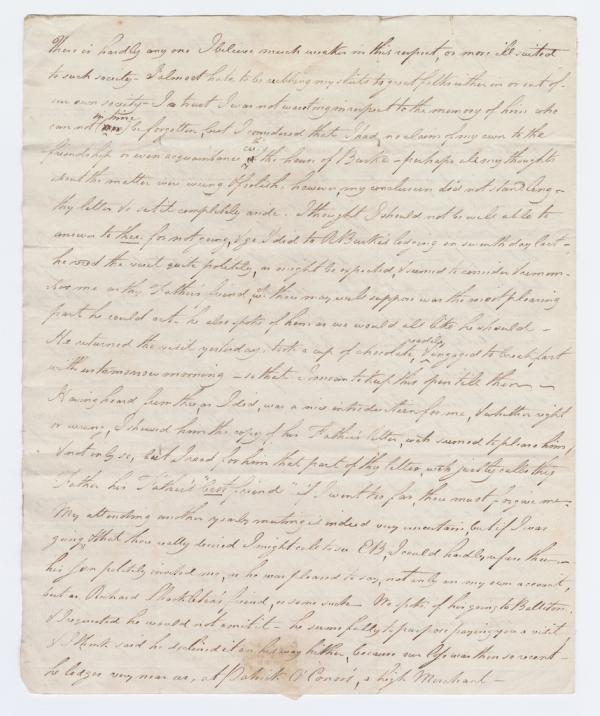 There is hardly any one I believe much weaker in this respect, or more ill suited
to such society - I almost hate to be rubbing my skirts to great folks either in or out of
our own society - I trust I was not wanting in respect to the memory of him who
can not in mine be forgotten, but I considered that I had no claim of my own to the
friendship or even acquaintance of the house of Burke - perhaps all my thoughts
about the matter were wrong & foolish, however, my conclusion did not stand long -
thy letter & set it completely aside. I thought I should not be well able to
answer to thee for not going, & go I did to R Burke's lodging on seventh day last -
he rec'd the visit quite politely, as might be expected, & seemed to consider & remem-
ber me as thy Father's friend, wch thou may well suppose was the most pleasing
part he could act - he also spoke of him as we would all like he should -
He returned the visit yesterday, took a cup of chocolate, & readily engaged to breakfast
with us tomorrow morning - so that I mean to keep this open till then -
Having heard from thee, as I did, was a nice introduction for me, & whether right
or wrong, I shewed him the copy of his Father's letter, wch seemed to please him,
& not only so, but I read for him that part of thy letter, wch justly calls thy
Father his Father's "best friend" if I went too far, thou must forgive me -
My attending another yearly meeting is indeed very uncertain, but if I was
going, & that thou really desired I might call to see EB, I could hardly refuse thee -
his son politely invited me, as he was pleased to say, not only on my own account,
but as Richard Shackleton's friend, or some such - He spoke of his going to Ballitore
& I requested he would not omit it - he seems fully to purpose paying you a visit,
& I think said he declined it on his way hither, because our loss was then so recent -
he lodges very near us, at Patrick O'Conor's, a high Merchant -